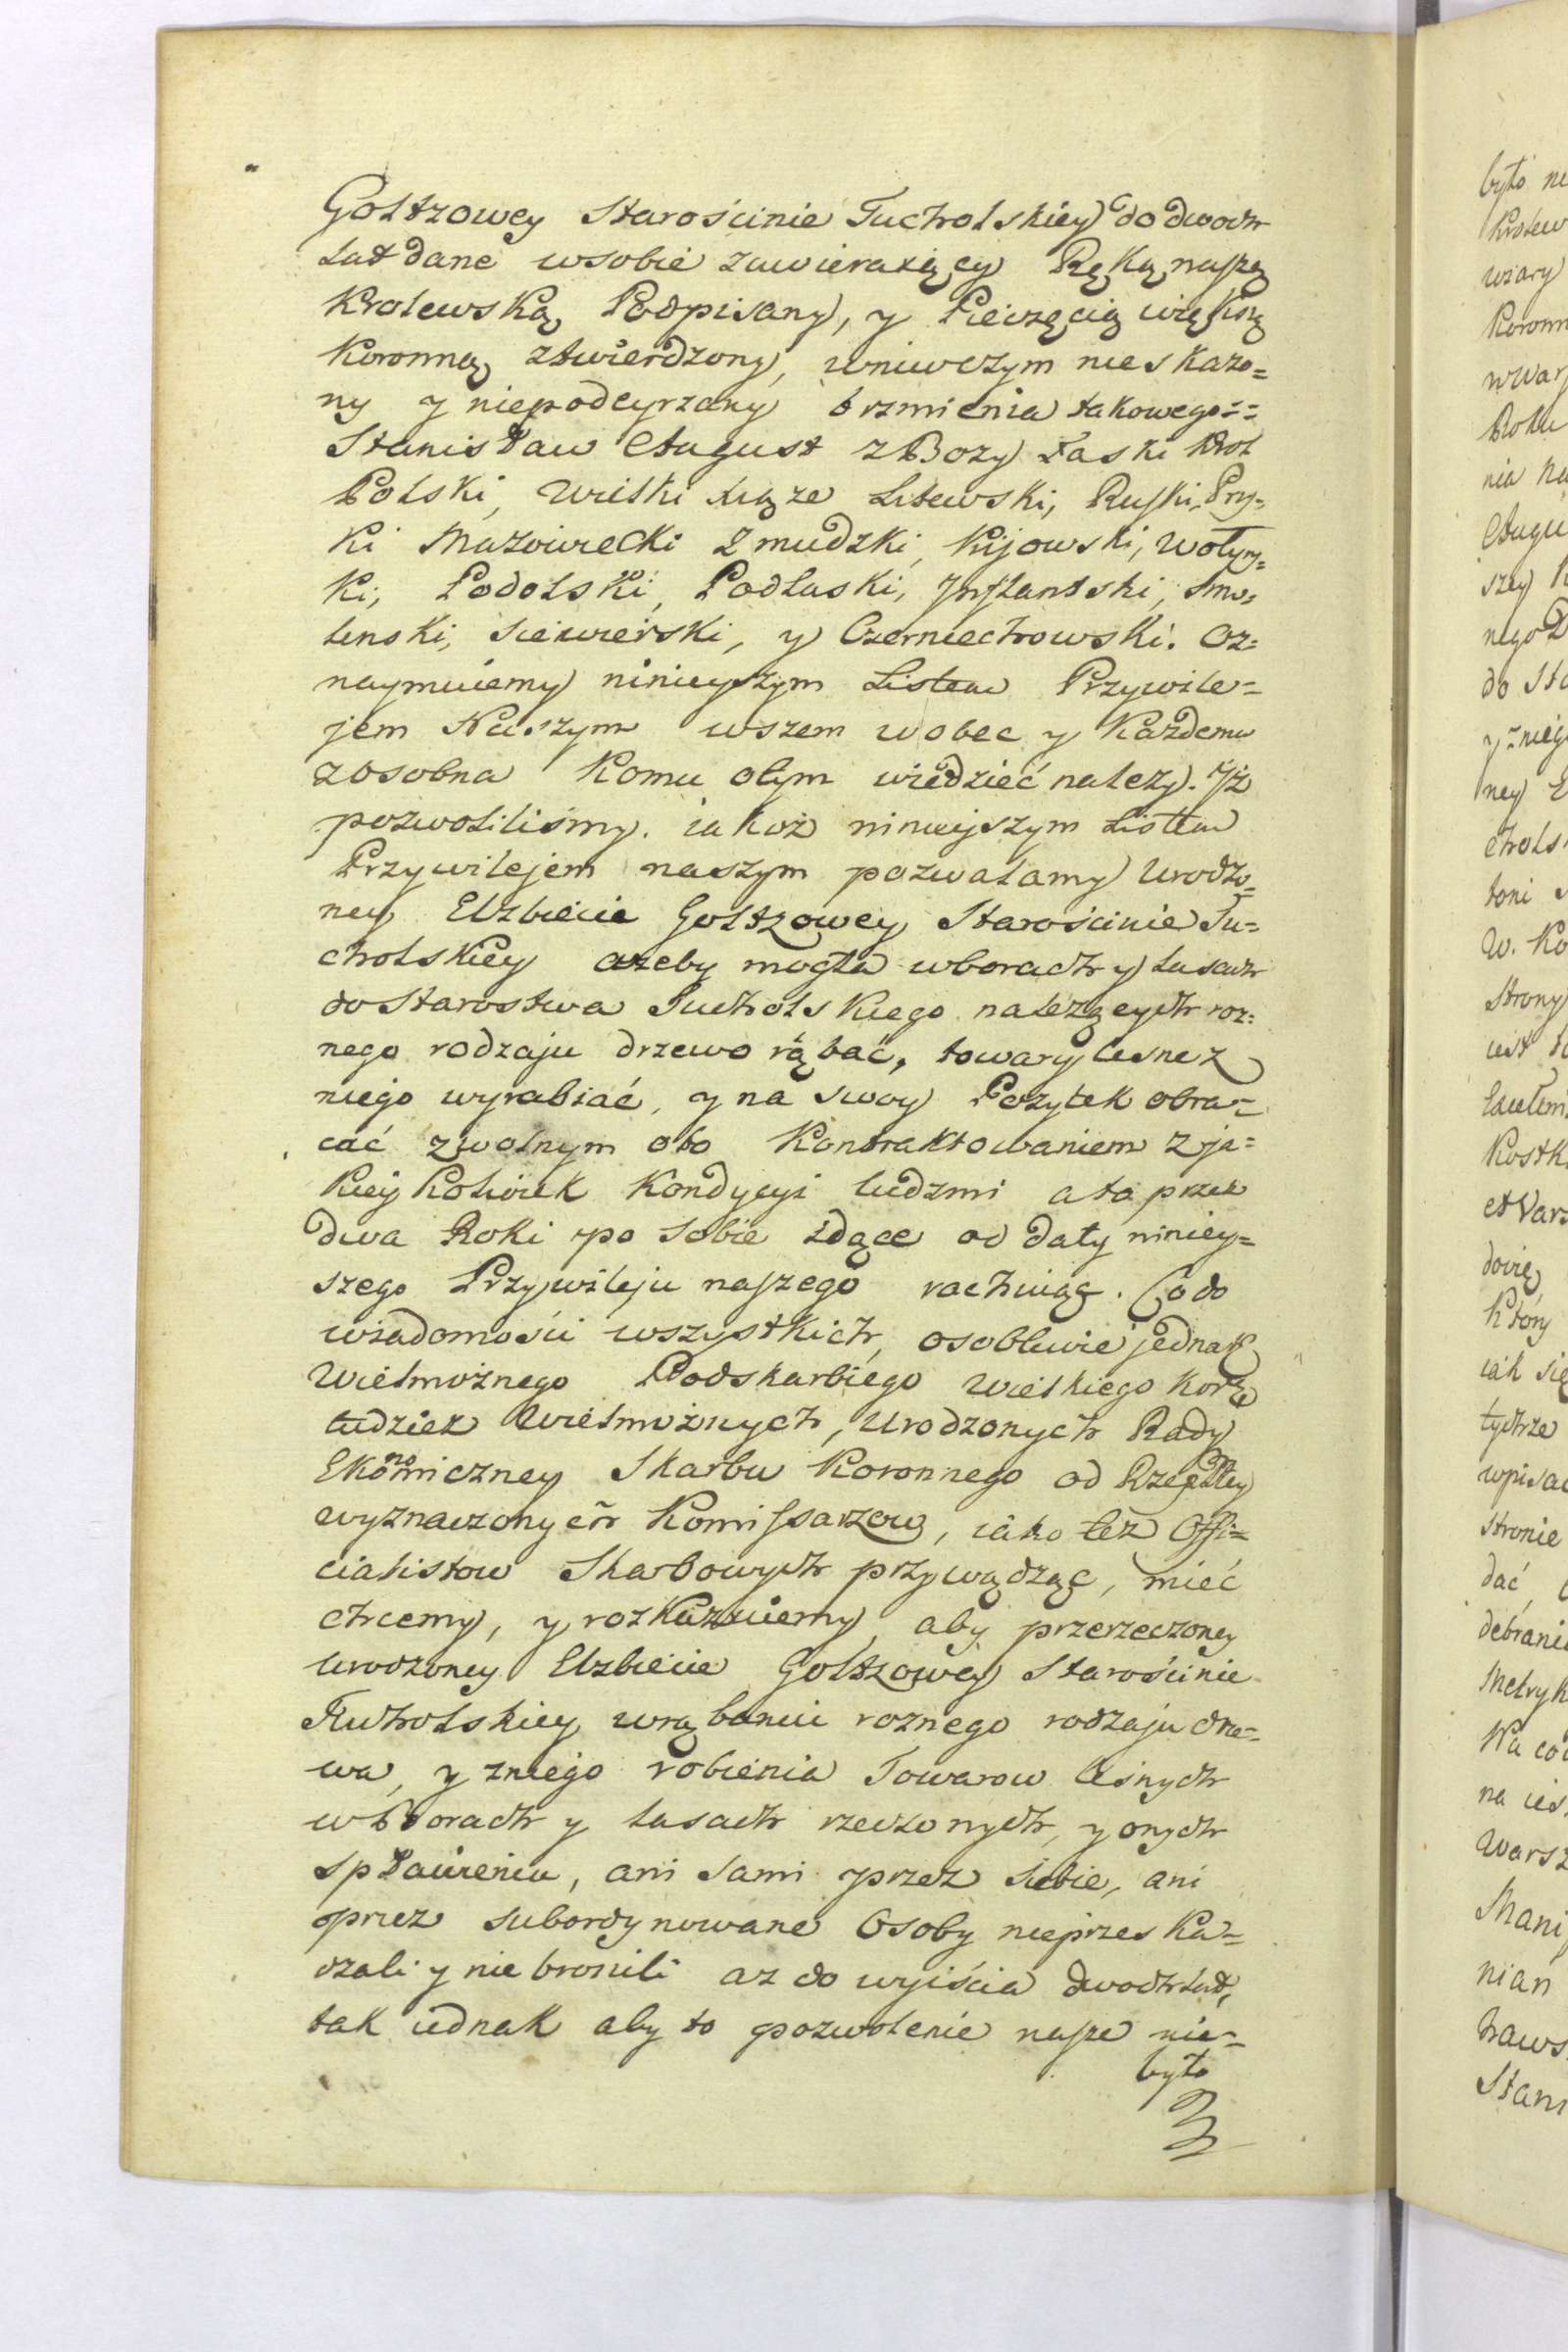 Goltzowey Starościnie Tucholskiey do dwoch
Lat dane w sobie zawieraiący Ręką naszą
Krolewską Podpisany, y Pieczęcią większą
Koronną ztwierdzony, wniwczym nieskazo=
ny y niepodeyrzany brzmienia takowego==
Stanisław August z Bozy Łaski Krol
Polski, Wielki Xiąze Litewski, Ruski, Prus=
ki Mazowiecki Zmudzki, Kijowski, Wołyns=
ki, Podolski, Podlaski, Inflantski, Smo=
lenski, Siewierski, y Czerniechowski. Oz=
naymuiemy ninieyszym Listem Przywile=
jem Naszym wszem wobec y Każdemu
zosobna Komu otym wiedzieć nalezy. Iż
pozwoliliśmy. iakoż ninieyszym Listem
Przywilejem naszym pozwalamy Urodzo=
ney Elzbiecie Goltzowey Starościnie Tu=
cholskiey azeby mogła wborach y lasach
do Starostwa Tucholskiego nalezących roz=
nego rodzaju drzewo rąbać, towary lesne z
niego wyrabiać, y na swoy Pozytek obra=
cać zwolnym oto Kontraktowaniem z ja=
kiey kolwiek Kondycyi ludzmi a to przez
dwa Roki po sobie idące od daty niniey=
szego Przywileju naszego rachuiąc. Co do
wiadomości wszystkich, osobliwie jednak
Wielmożnego Podskarbiego Wielkiego Kor:
tudziez Wielmożnych, Urodzonych Rady
Ekonomiczney Skarbu Koronnego od Rzeplltey
wyznaczonych Komissarzow, iako tez Offi=
cialistow Skarbowych przywądząc, mieć
chcemy, y rozkazuiemy, aby przerzeczoney
urodzoney Elzbiecie Goltzowey Starościnie
Tucholskiey wrąbaniu roznego rodzaju drze=
wa, y zniego robienia Towarow leśnych
w Borach y lasach rzeczonych, y onych
spławieniu, ani sami przez siebie, ani
przez subordynowane Osoby nieprzeszka=
dzali y nie bronili az do wyiścia dwoch lat,
tak iednak aby to pozwolenie nasze nie=
było